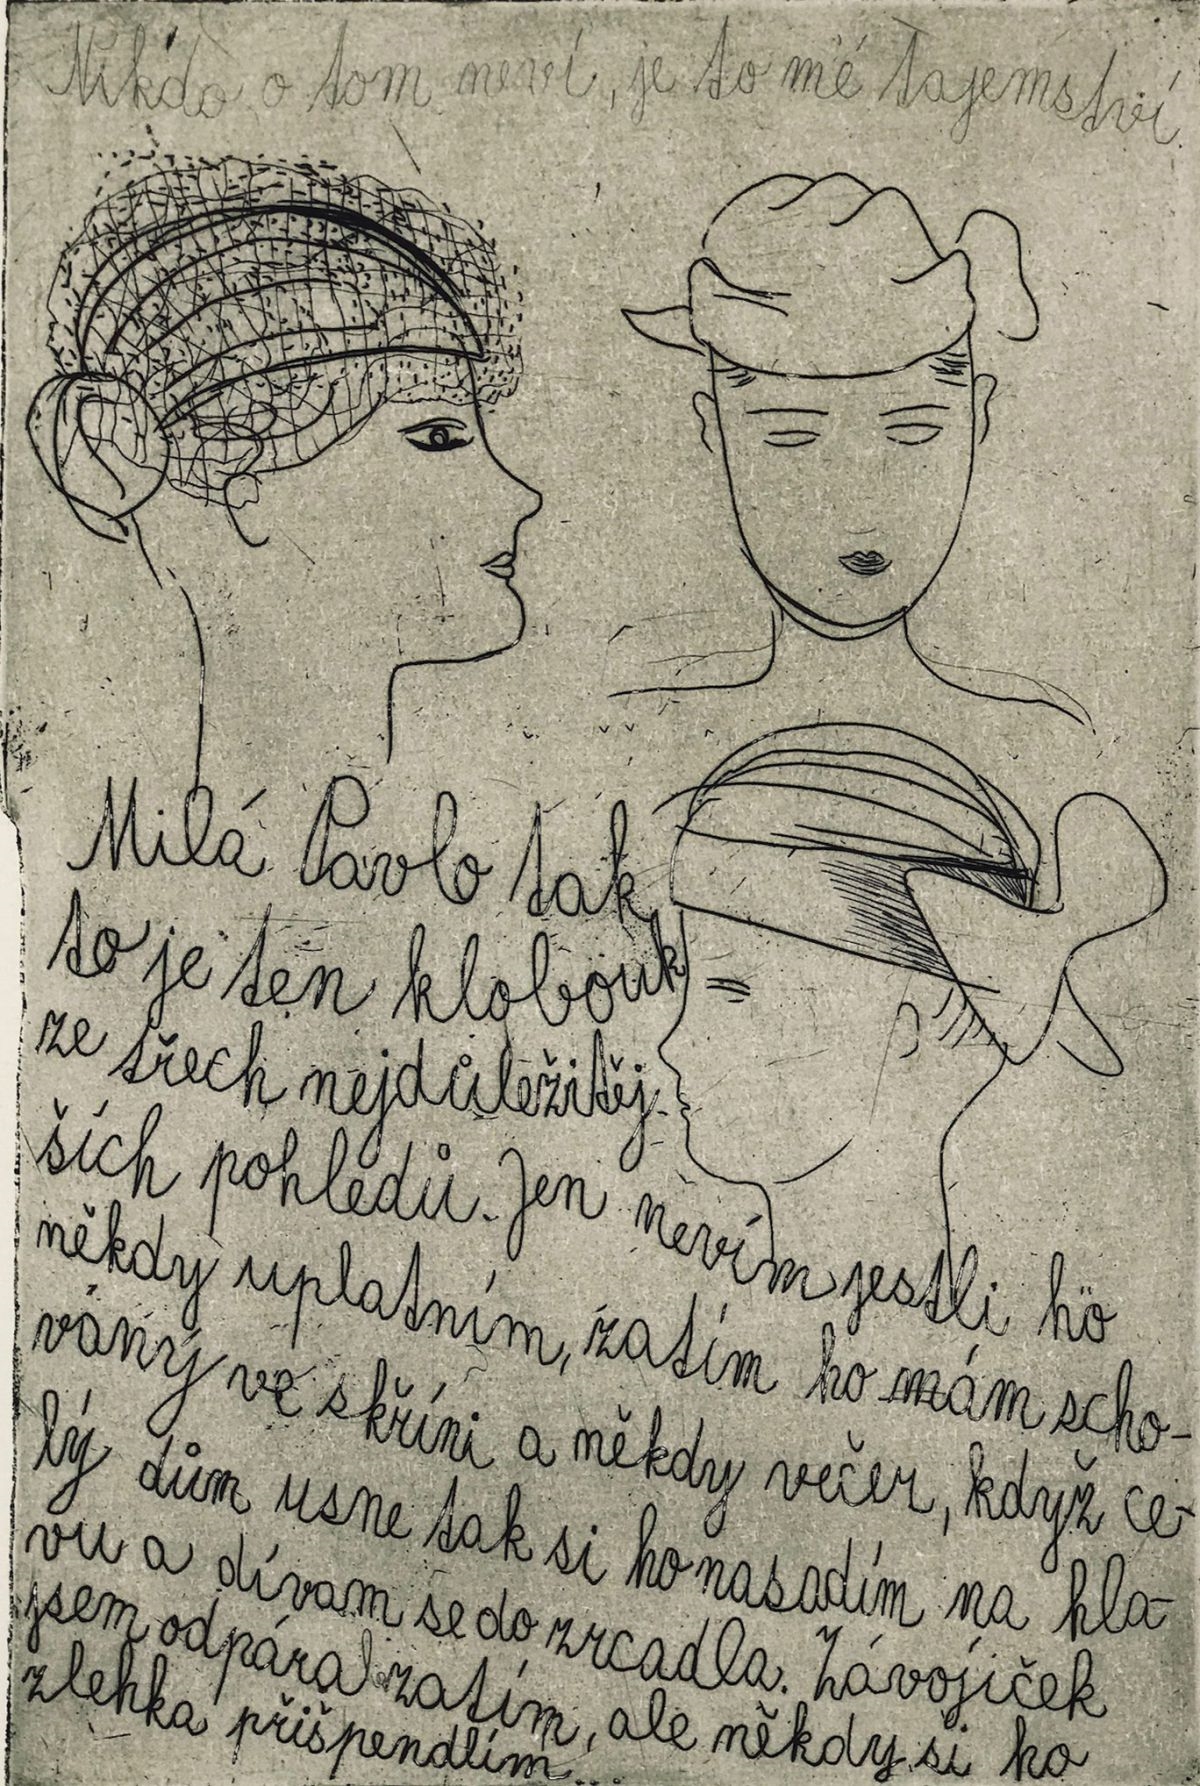 Nikdo o tom neví, je to mé tajemství
Milá Pavlo tak
to je ten klobouk
ze třech nejdůležitěj-
ších pohledů. Jen nevím jestli ho
někdy uplatním, zatím ho mám scho-
vaný ve skříni a někdy večer, když ce-
lý dům usne tak si ho nasadím na hla-
vu a dívam se do zrcadla. Závojíček
jsem odpáral zatím, ale někdy si ho
zlehka přišpendlím...